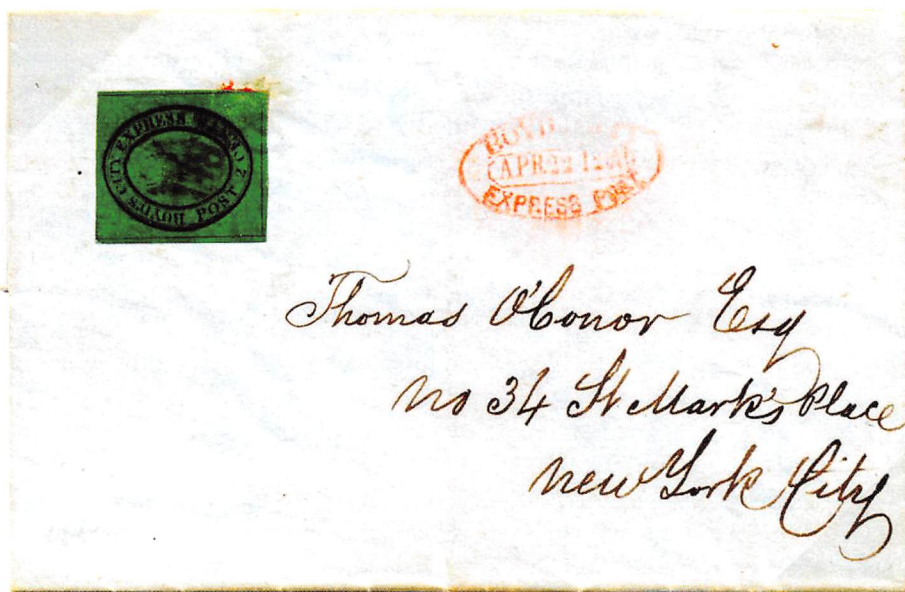 BOYD'S CITY EXPRESS POST 2
BOYD'S
APR 22
EXPRESS POST
Thomas O'Conor Esq
No 34 St Mark's Place
New York City